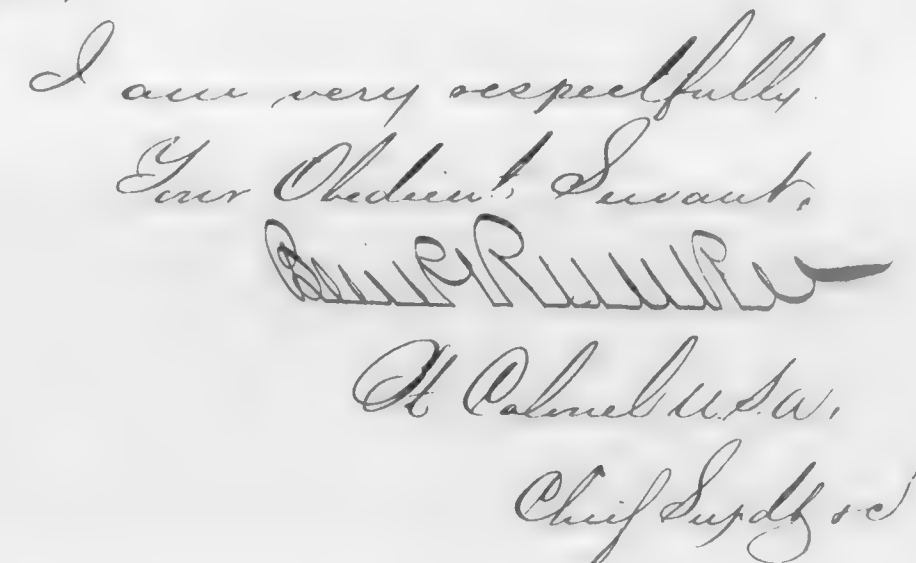 I am very respectfully
Your Obedient Servant,
Ben P Runkle
Lt Colonel U.S.A.
Chief Supdt &c